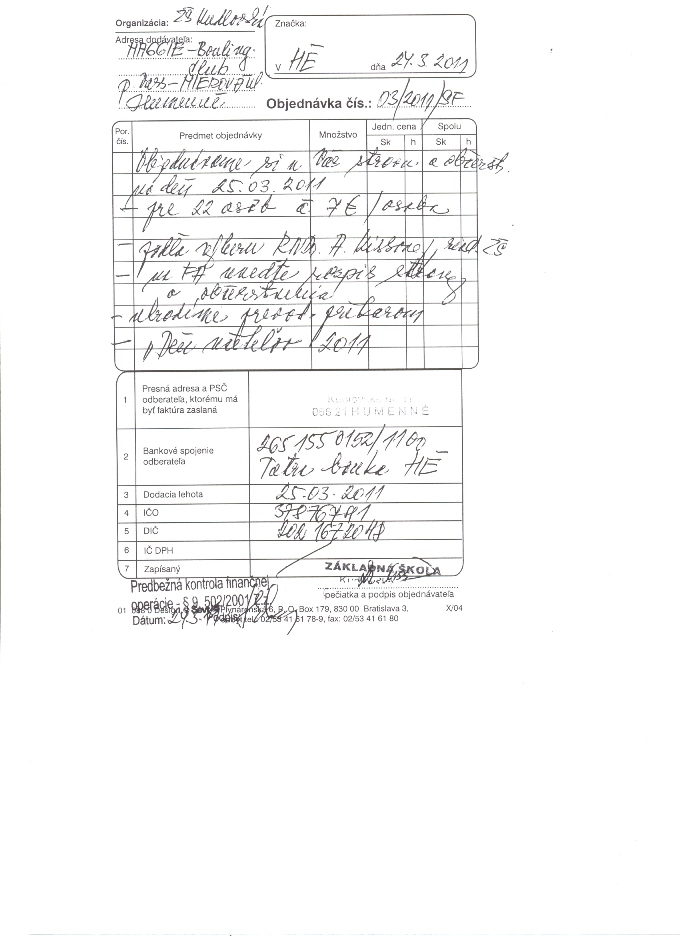 Organizácia: ZŠ Kudlovská
Značka:
Adresa dodávateľa:
MAGGIE - Bouling
club
MIEROVÁ ul.
Humenné
V HÉ dňa 24.3.2011
Objednávka čís.: 03/2011/SF
Por. čís. Predmet objednávky Množstvo Jedn. cena Spolu
Sk h Sk h
Objednávame si u Vás stravu a občerst.
na deň 25.03.2011
- pre 22 osôb á 7€/osoba
- podľa výberu RNDr. A. riad. ZŠ
- na FA uveďte rozpis stravy
a občerstvenia
- uhradíme prevod. príkazom
- "Deň učiteľov" 2011
1 Presná adresa a PSČ
odberateľa, ktorému má
byť faktúra zaslaná
066 21 HUMENNÉ
2 Bankové spojenie
odberateľa
265 155 0152/1100
Tatra banka HÉ
3 Dodacia lehota 25.03.2011
4 IČO
5 DIČ 202 1672048
6 IČ DPH
7 Zapísaný
ZÁKLADNÁ ŠKOLA
Predbežná kontrola finančnej
operácie - § 9, 502/2001
pečiatka a podpis objednávateľa
01 Ševt Plynárenská 6, P. O. Box 179, 830 00 Bratislava 3, X/04
Dátum: Podpis: tel.: 02/53 41 61 78-9, fax: 02/53 41 61 80